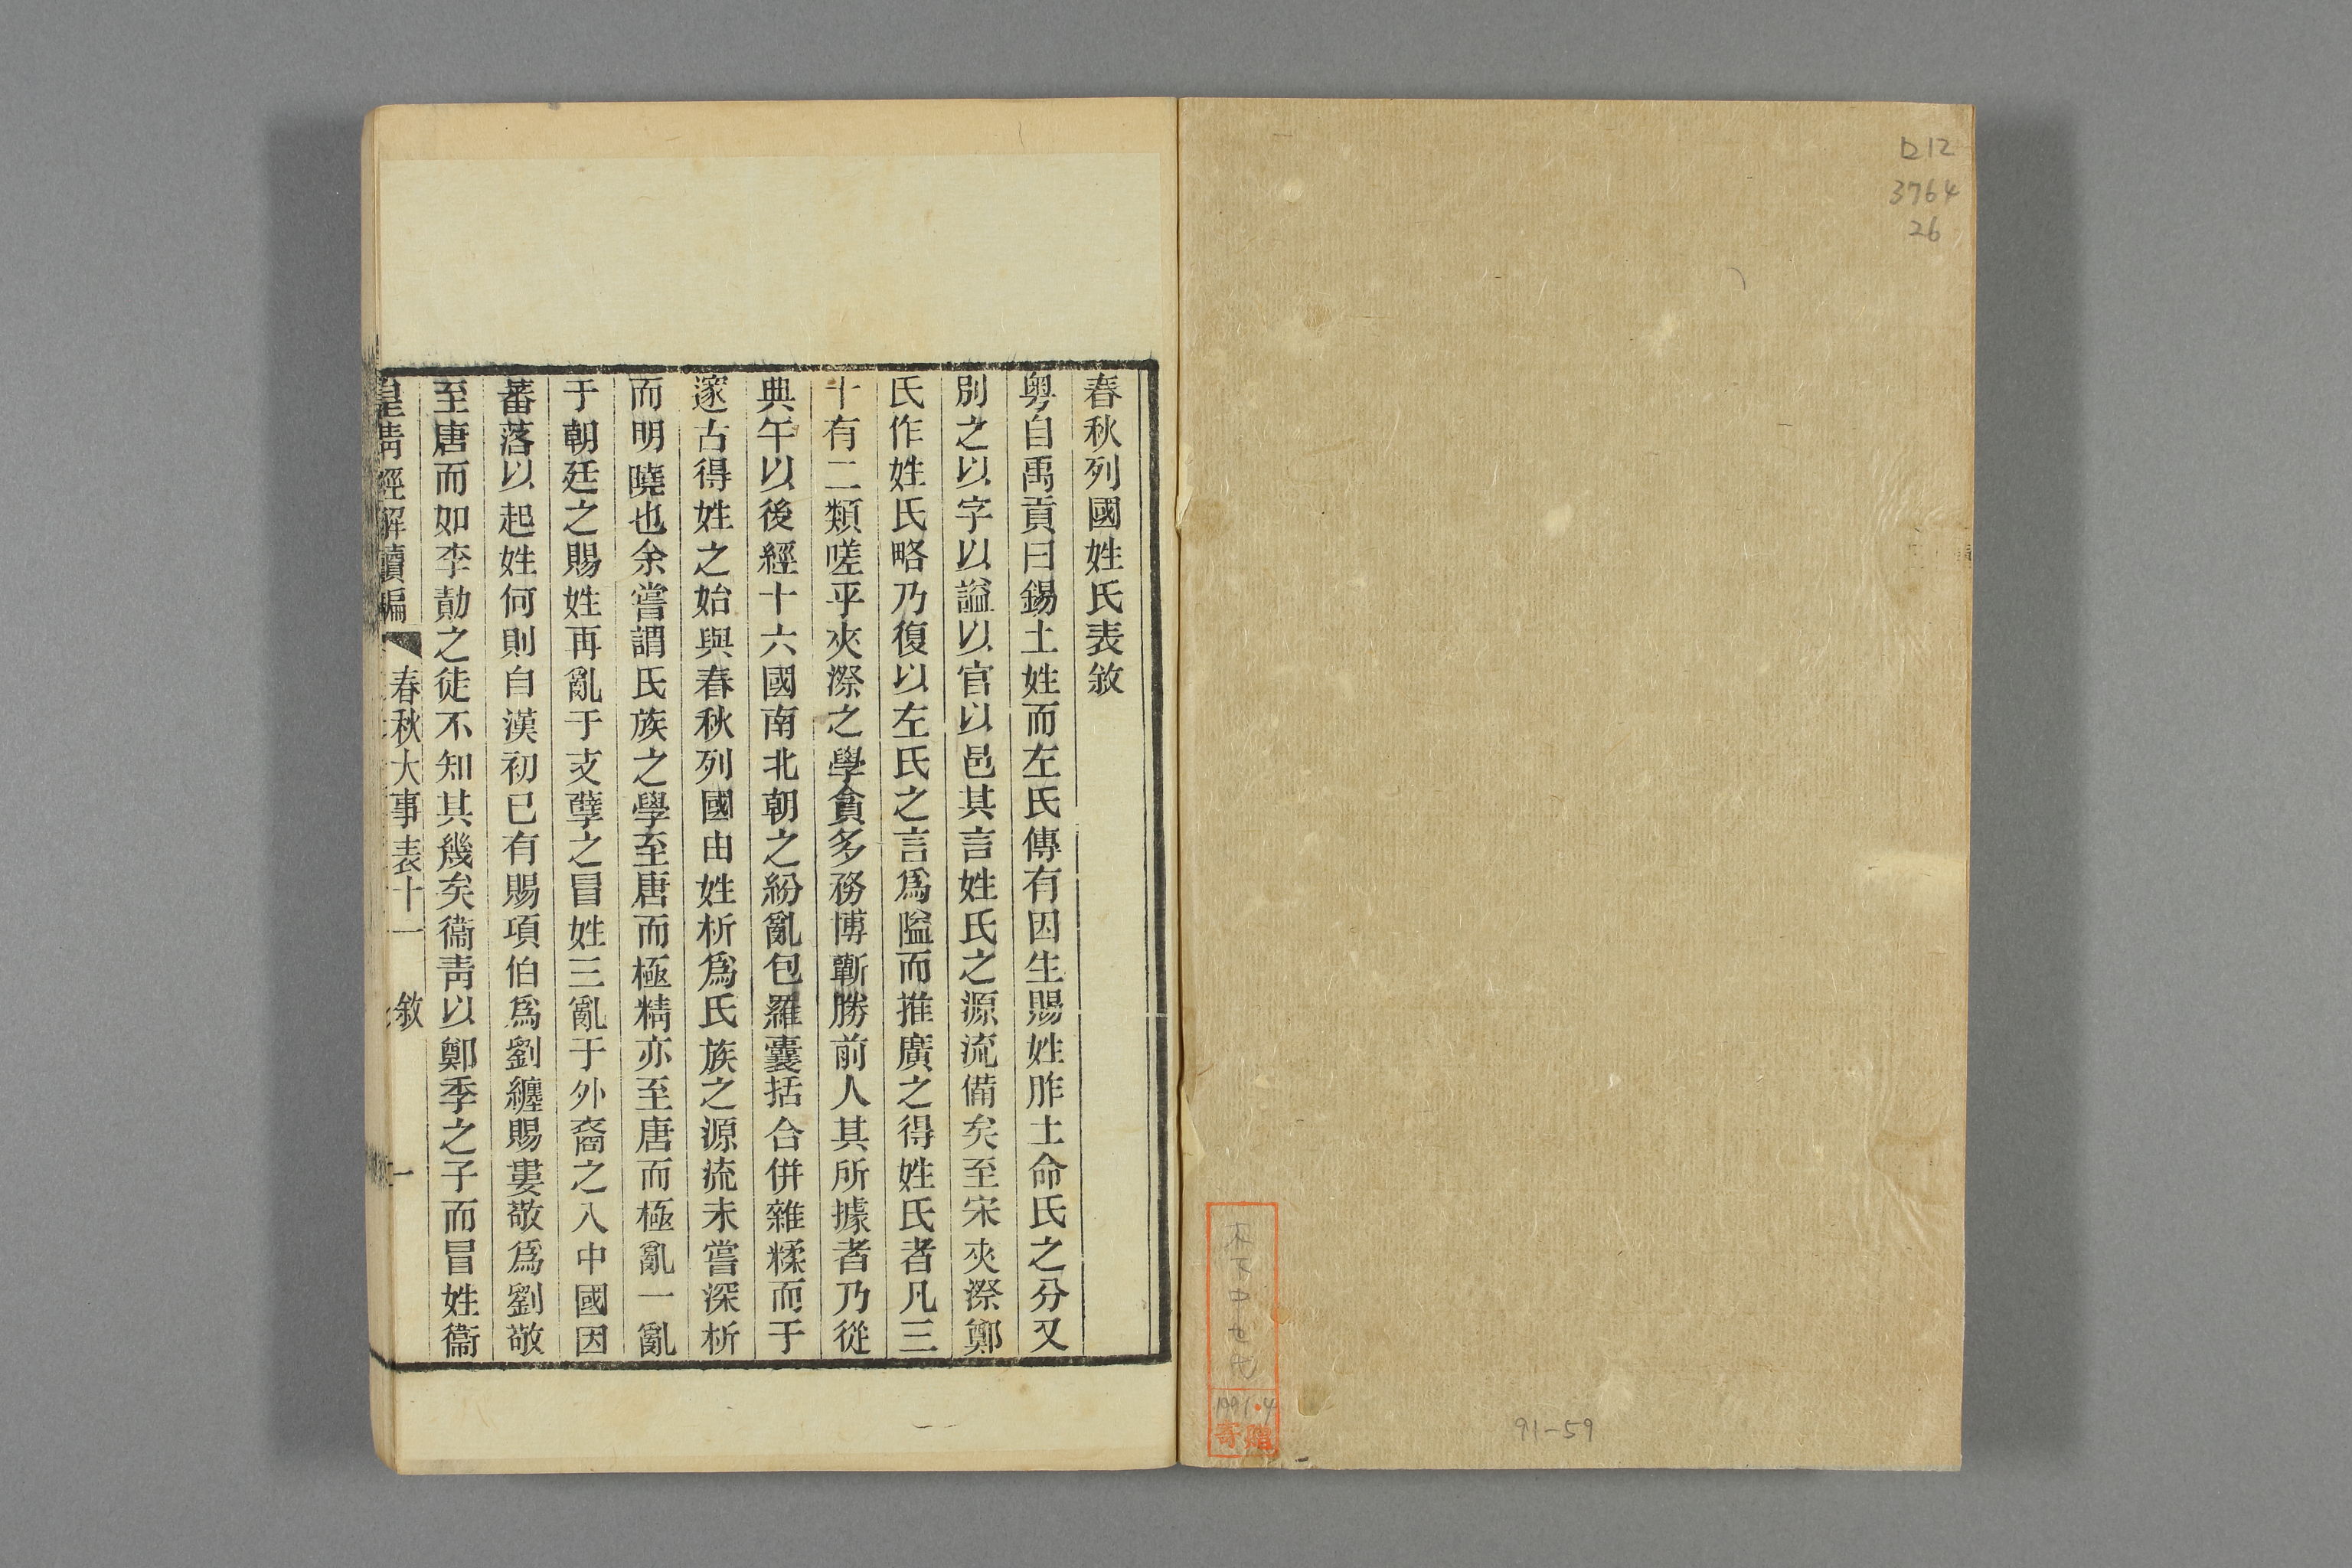 ロ12
3764
26
木下中也氏
寄贈
91-59
春秋列國姓氏表敘
粵自禹貢曰錫土姓而左氏傳有因生賜姓胙土命氏之分又
別之以字以謚以官以邑其言姓氏之源流備矣至宋夾漈鄭
氏作姓氏略乃復以左氏之言爲隘而推廣之得姓氏者凡三
十有二類嗟乎夾漈之學貪多務博斷勝前人其所據者乃從
典午以後經十六國南北朝之紛亂包羅囊括合併雜糅而于
邃古得姓之始與春秋列國由姓析爲氏族之源流未嘗深析
而明曉也余嘗謂氏族之學至唐而極精亦至唐而極亂一亂
于朝廷之賜姓再亂于支孽之冒姓三亂于外裔之入中國因
蕃落以起姓何則自漢初已有賜項伯爲劉纏賜婁敬爲劉敬
至唐而如李勣之徒不知其幾矣衞靑以鄭季之子而冒姓衞
皇淸經解續編 春秋大事表十一 敘 一